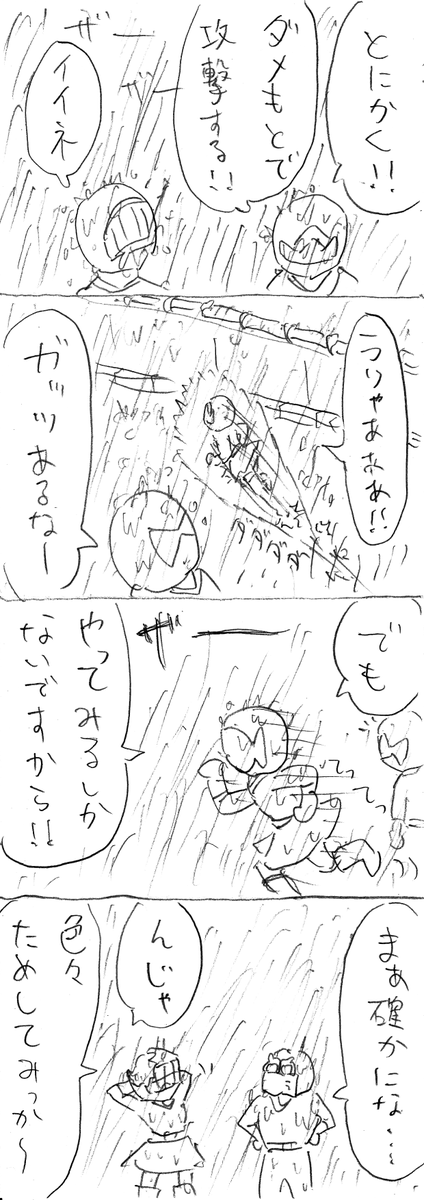 とにかく!!
ダメもとで
攻撃する!!
イイネ
ザー
ザー
うりゃあああ!!
ガッツあるなー
ダダダダ
でも
ザー
てってっ
やってみるしか
ないですから!!
まぁ確かにな…
んじゃ
色々
ためしてみっか〜